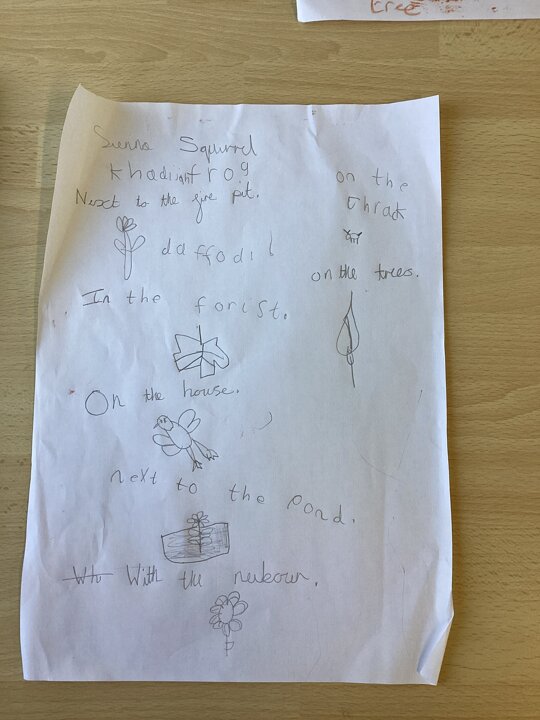 tree
Sienna Squirrel
Khadijahfrog
Next to the fire pit.
daffodil
In the forist.
On the house.
next to the pond.
Wtv With the neubour.
on the
thrak
on the trees.